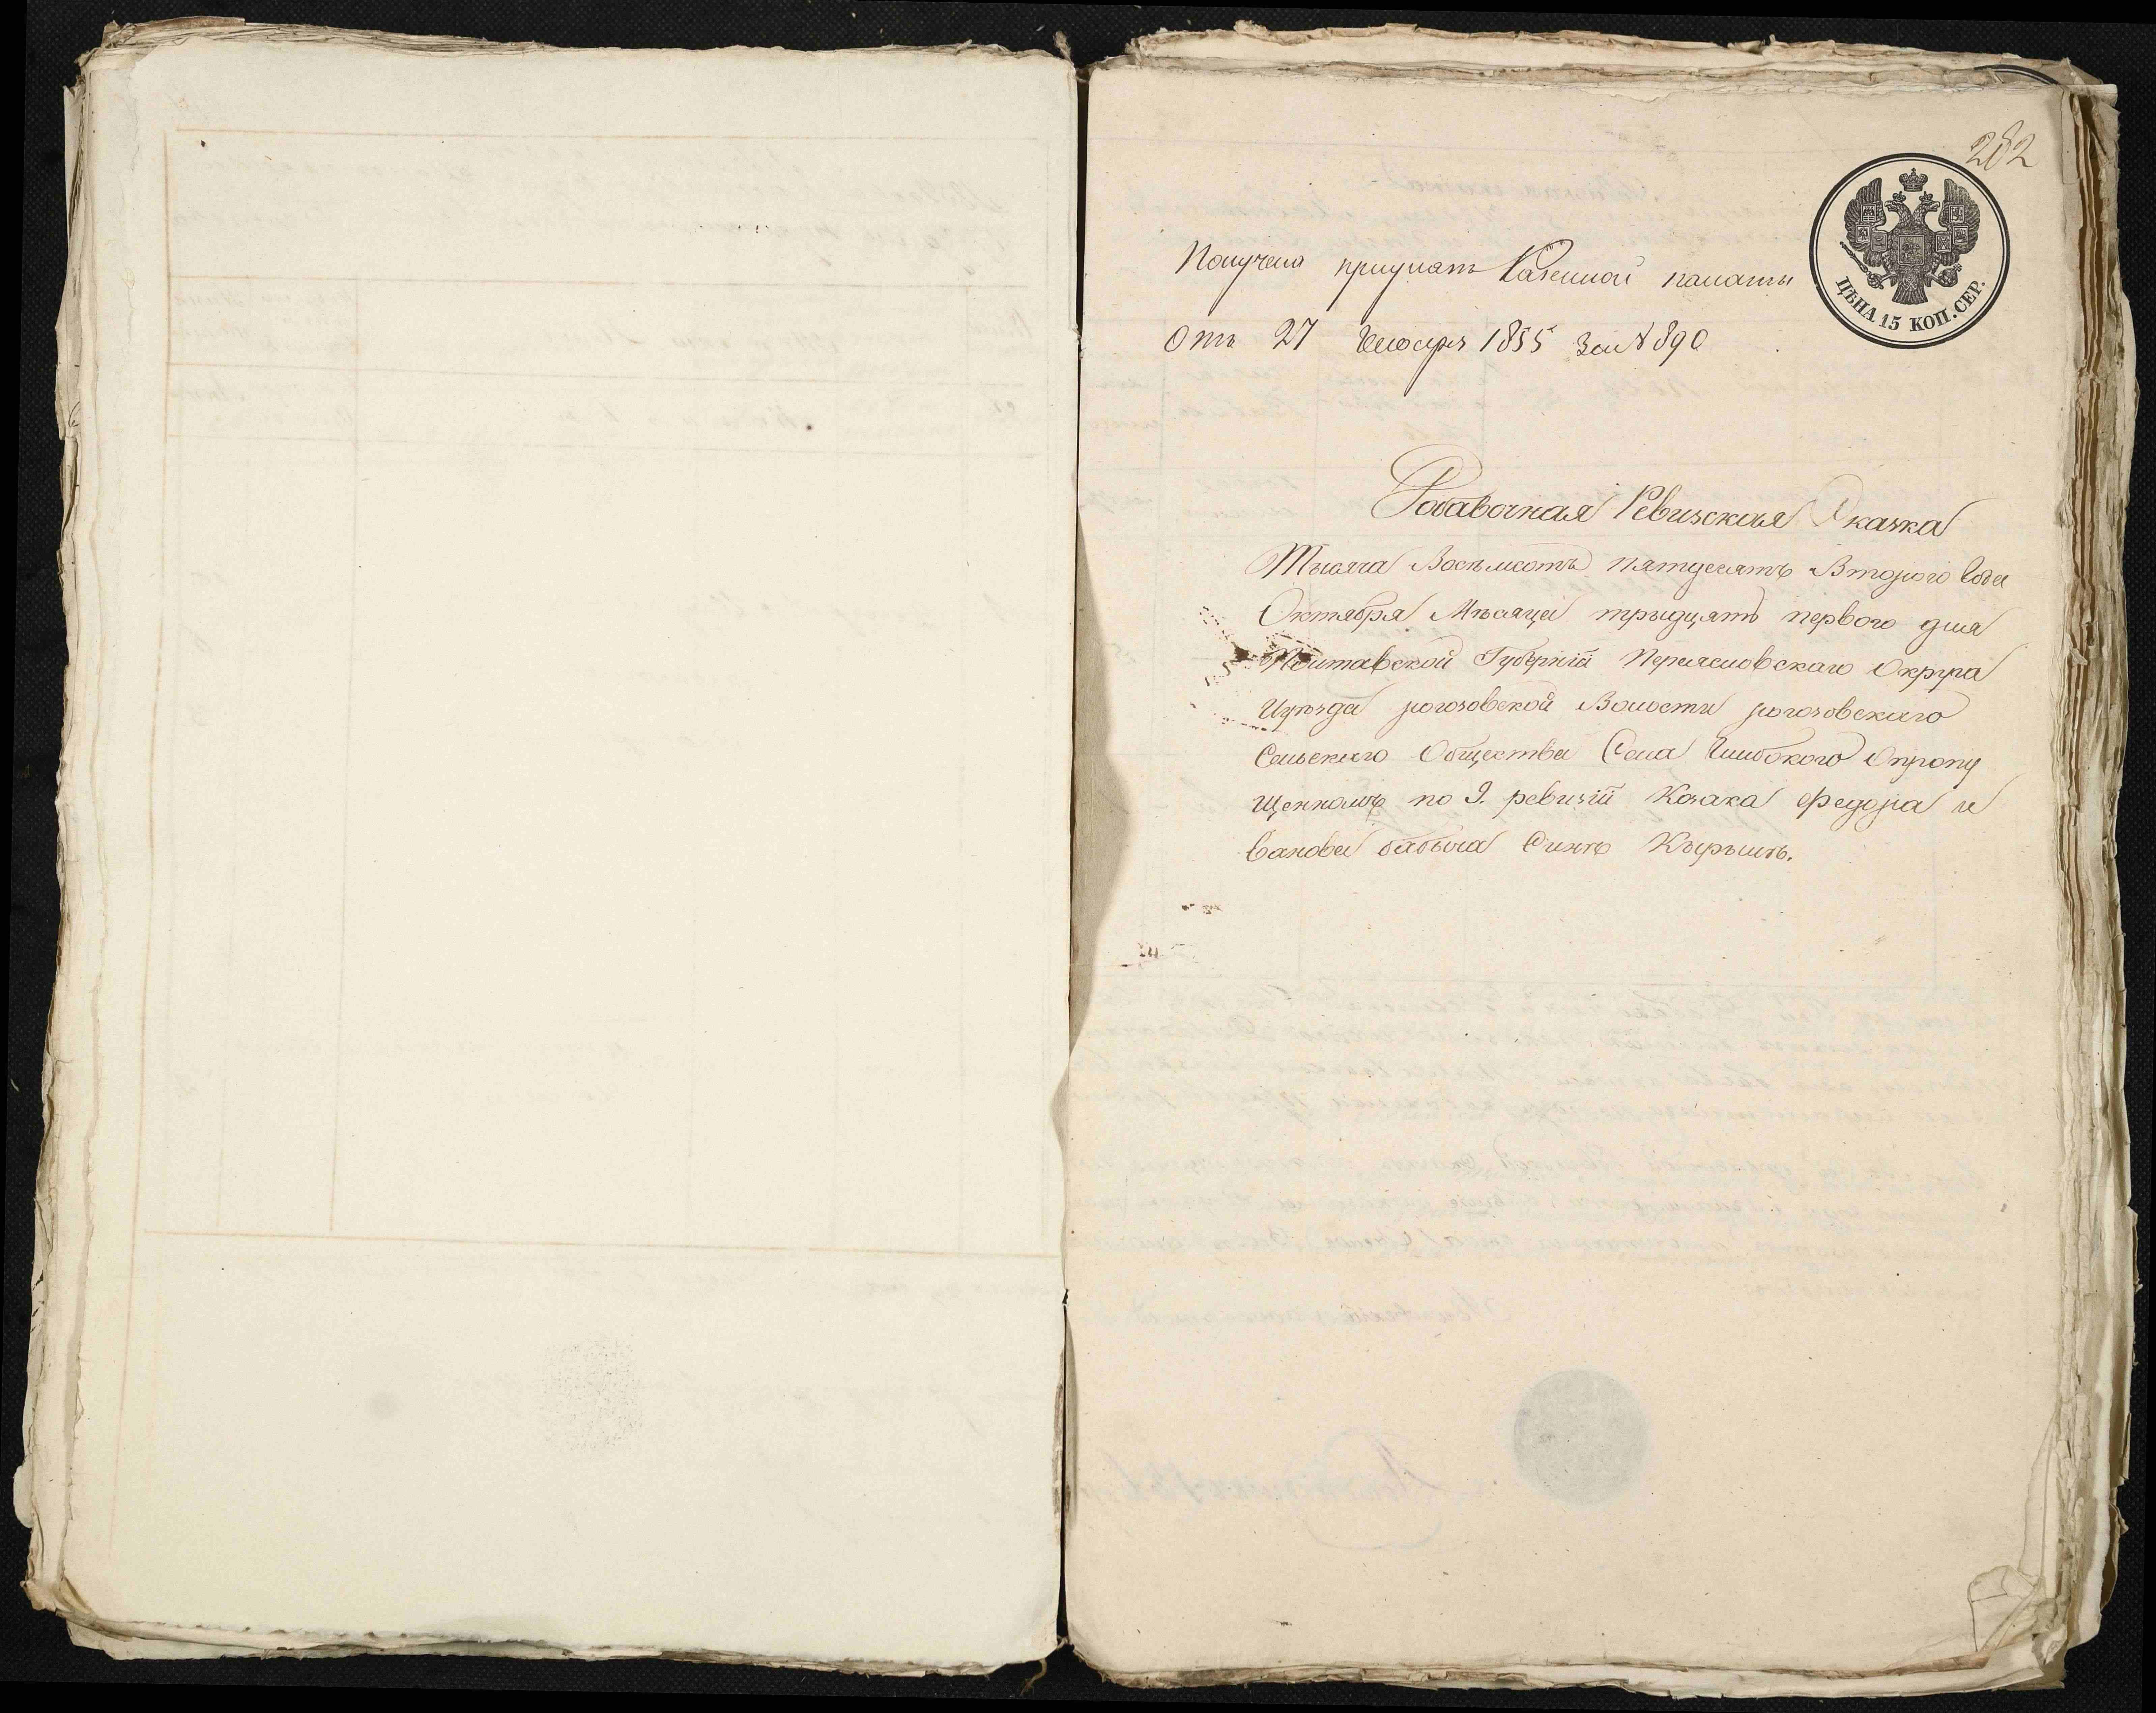 282
ЦѢНА 15 КОП. СЕР.
Получена при указѣ Казенной палаты
Отъ 27 1855 за № 890
Добавочная Ревизская Сказка
Тысяча Восемьсотъ пятдесятъ Второго года
Октября Мѣсяца тридцять первого дня
Полтавской Губерніи Переясловскаго Округа
Иуѣзда рогозовской Волости рогозовскаго
Сельскаго Общества Села Глибокого Опропу
щенномъ по 9. ревизіи Козака Федора и
ванова бабыча Синѣ Кырылѣ.